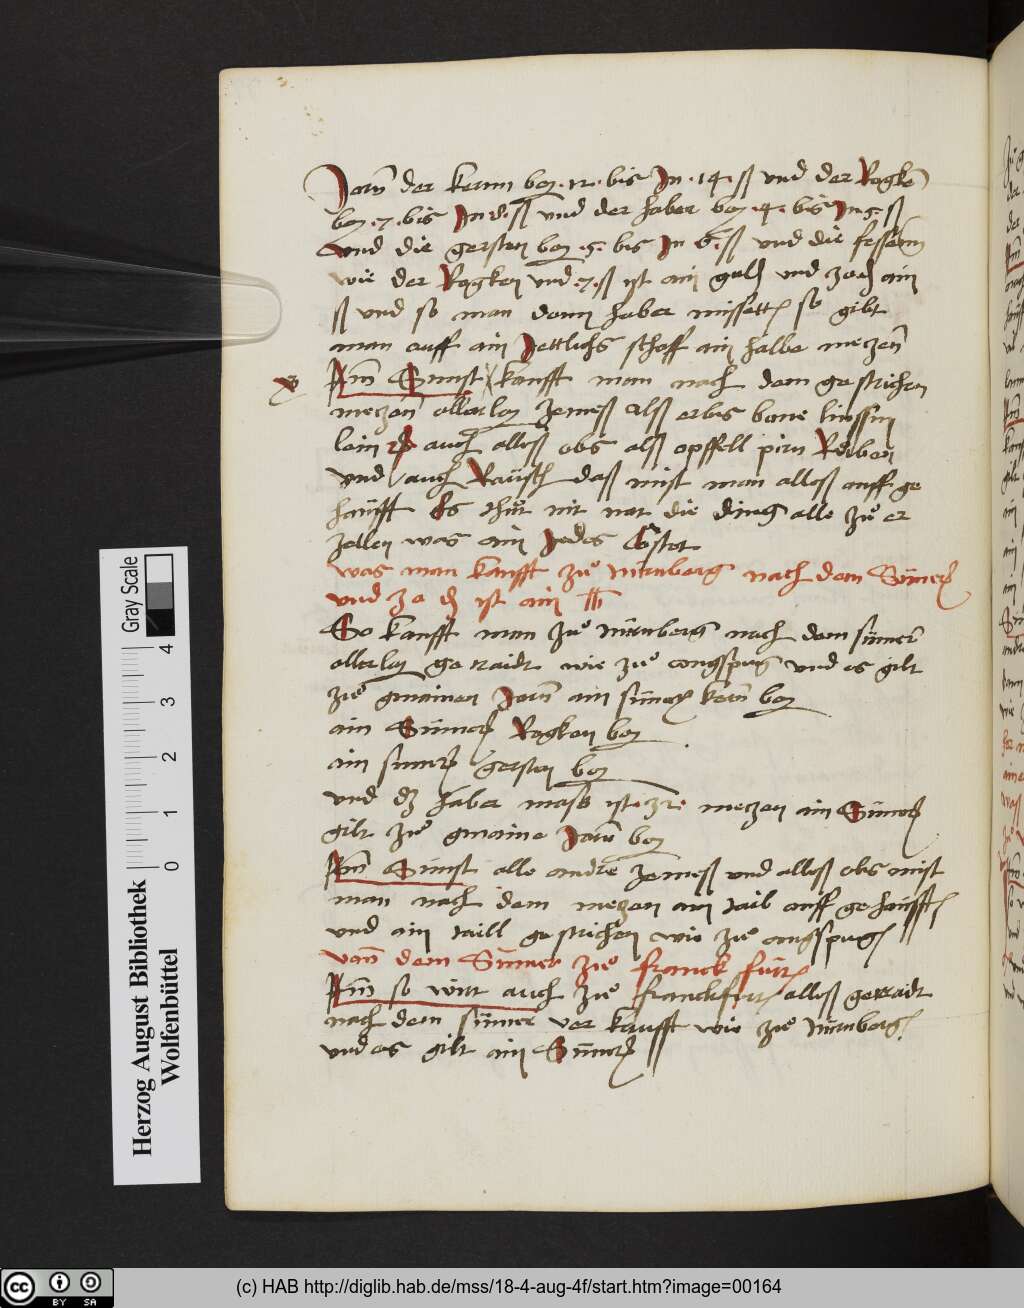 Jarn der kernn bey .12. bis Jn .14. ß und der Rogken
bey .7. bis Jn 8. ß und der haber bey .4. bis Jn 5. ß
und die gersten bey .5. bis Jn 6. ß und die fessenn
wie der Rogken und .7. ß ist ain guld und 30 d ain
ß und so man dann haber misset so gibt
man auff ain Jettlichs schaff ain halbe meczen
Jtm Sunst kaufft man nach dem gestrichen
meczen allerlay zemeß alß erbis bone linssin
lein auch alleß obs alß opffell pirn Rueben
und auch daß mist man alleß auff ge
haüfft Es thut nit not die ding alle zu er
zellen was ain Jedes Costet
was man kaufft zu nürnberg nach dem Sümer
und 30 d ist ain lb
So kaufft man zu nürnberg nach dem sümer
allerlay geträidt wie zu augspurg und es gilt
zu gmainen Jarn ain sümer kern bey
ain Sümer Rogken bey
ain sumer gersten bey
und dz haber mass ist 32 meczen ain Sümer
gilt zu gmaine Jarn bey
Jtm Sunst alle andre zemeß und alleß obs mist
man nach dem meczen ain tail auff gehaüfft
und ain taill gestrichen wie zu augspurg
vonn dem Sümer zu franckfurt
Jtm so wirt auch zu franckfurt alleß getraidt
nach dem sümer verkaufft wie zu Nürnberg
und es gilt ain Sümer
Gray Scale
0 1 2 3 4
Herzog August Bibliothek
Wolfenbüttel
cc BY SA
(c) HAB http://diglib.hab.de/mss/18-4-aug-4f/start.htm?image=00164